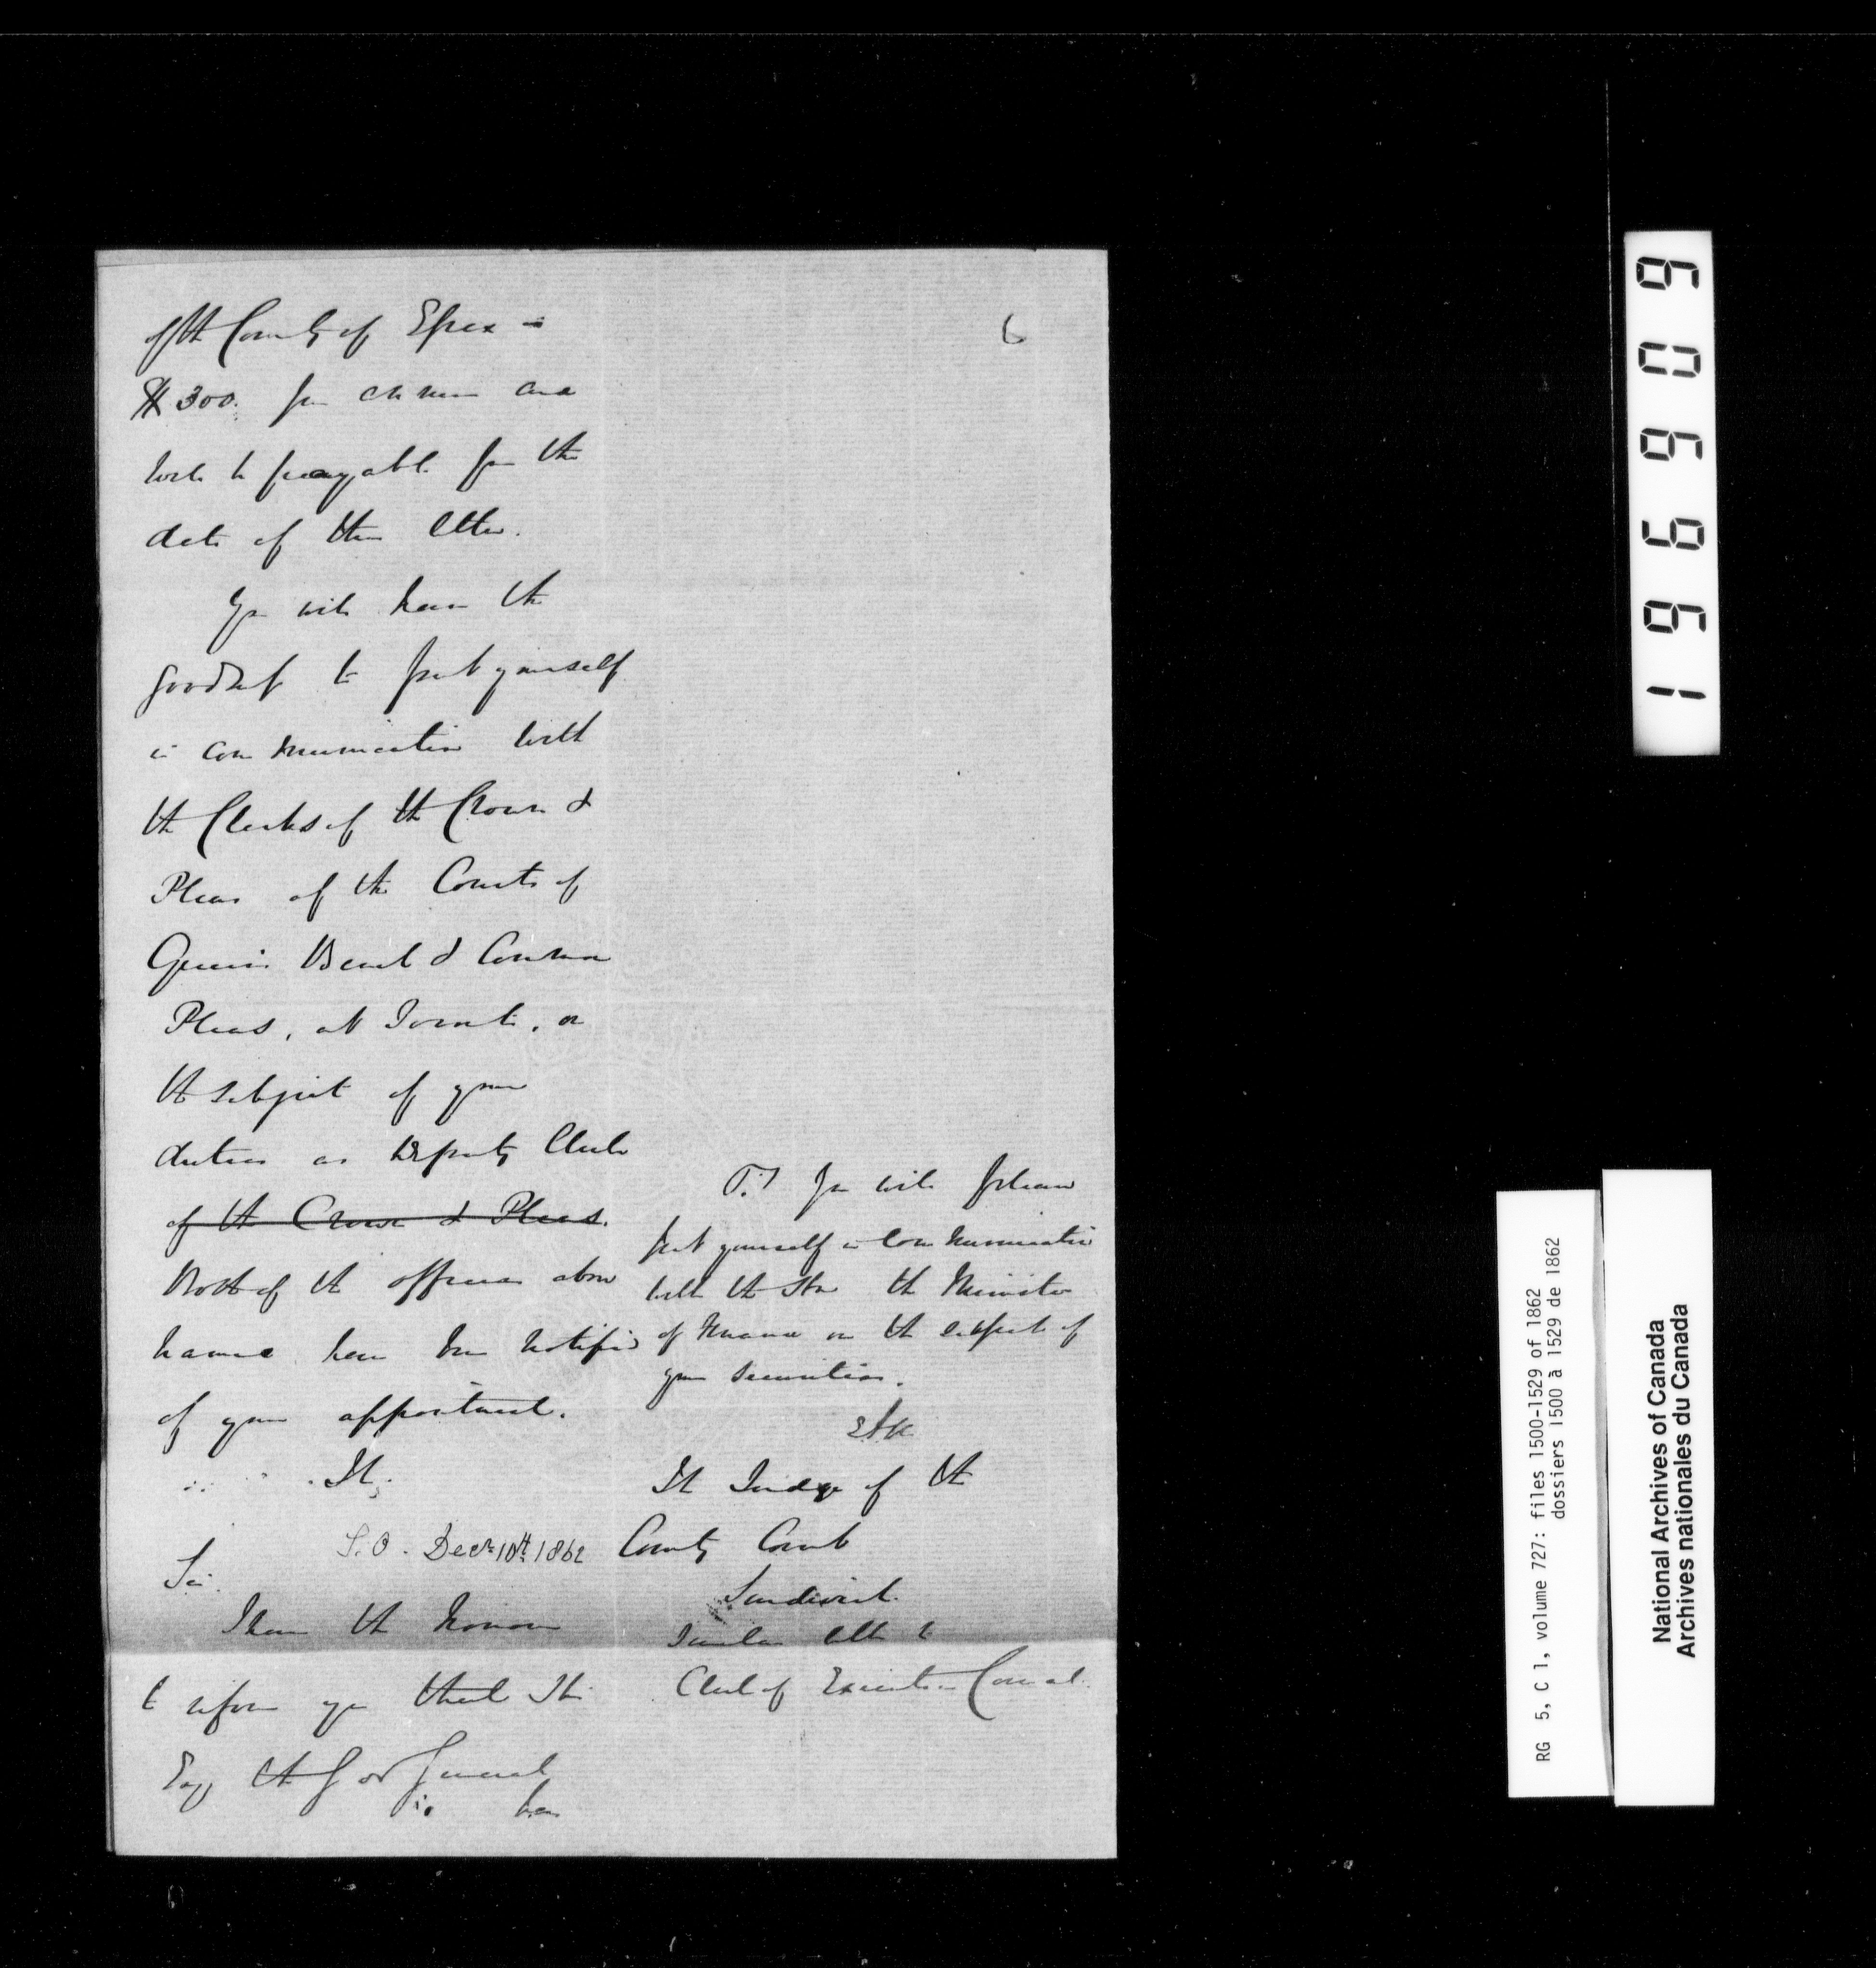 of the County of Essex is
$300. per annum and
will be payable from the
date of this letter.
You will have the
goodness to put yourself
in communication with
the Clerks of the Crown &
Pleas of the Courts of
Queen's Bench & Common
Pleas, at Toronto, on
the subject of your
duties as Deputy Clerk
of the Crown & Pleas.
Both of the officers above
named have been notified
of your appointment.
I h
S.O. Decr 10th 1862
Sir.
I have the honour
to inform you that His
Excy the Gov General
has
6
P.S. You will please
put yourself in communication
with the Hon the Minister
of Finance on the subject of
your securities.
EAM
The Judge of the
County Court
Sandwich
Similar letter to
Clerk of Executive Council.
196909
RG 5, C 1, volume 727: files 1500-1529 of 1862
dossiers 1500 à 1529 de 1862
National Archives of Canada
Archives nationales du Canada